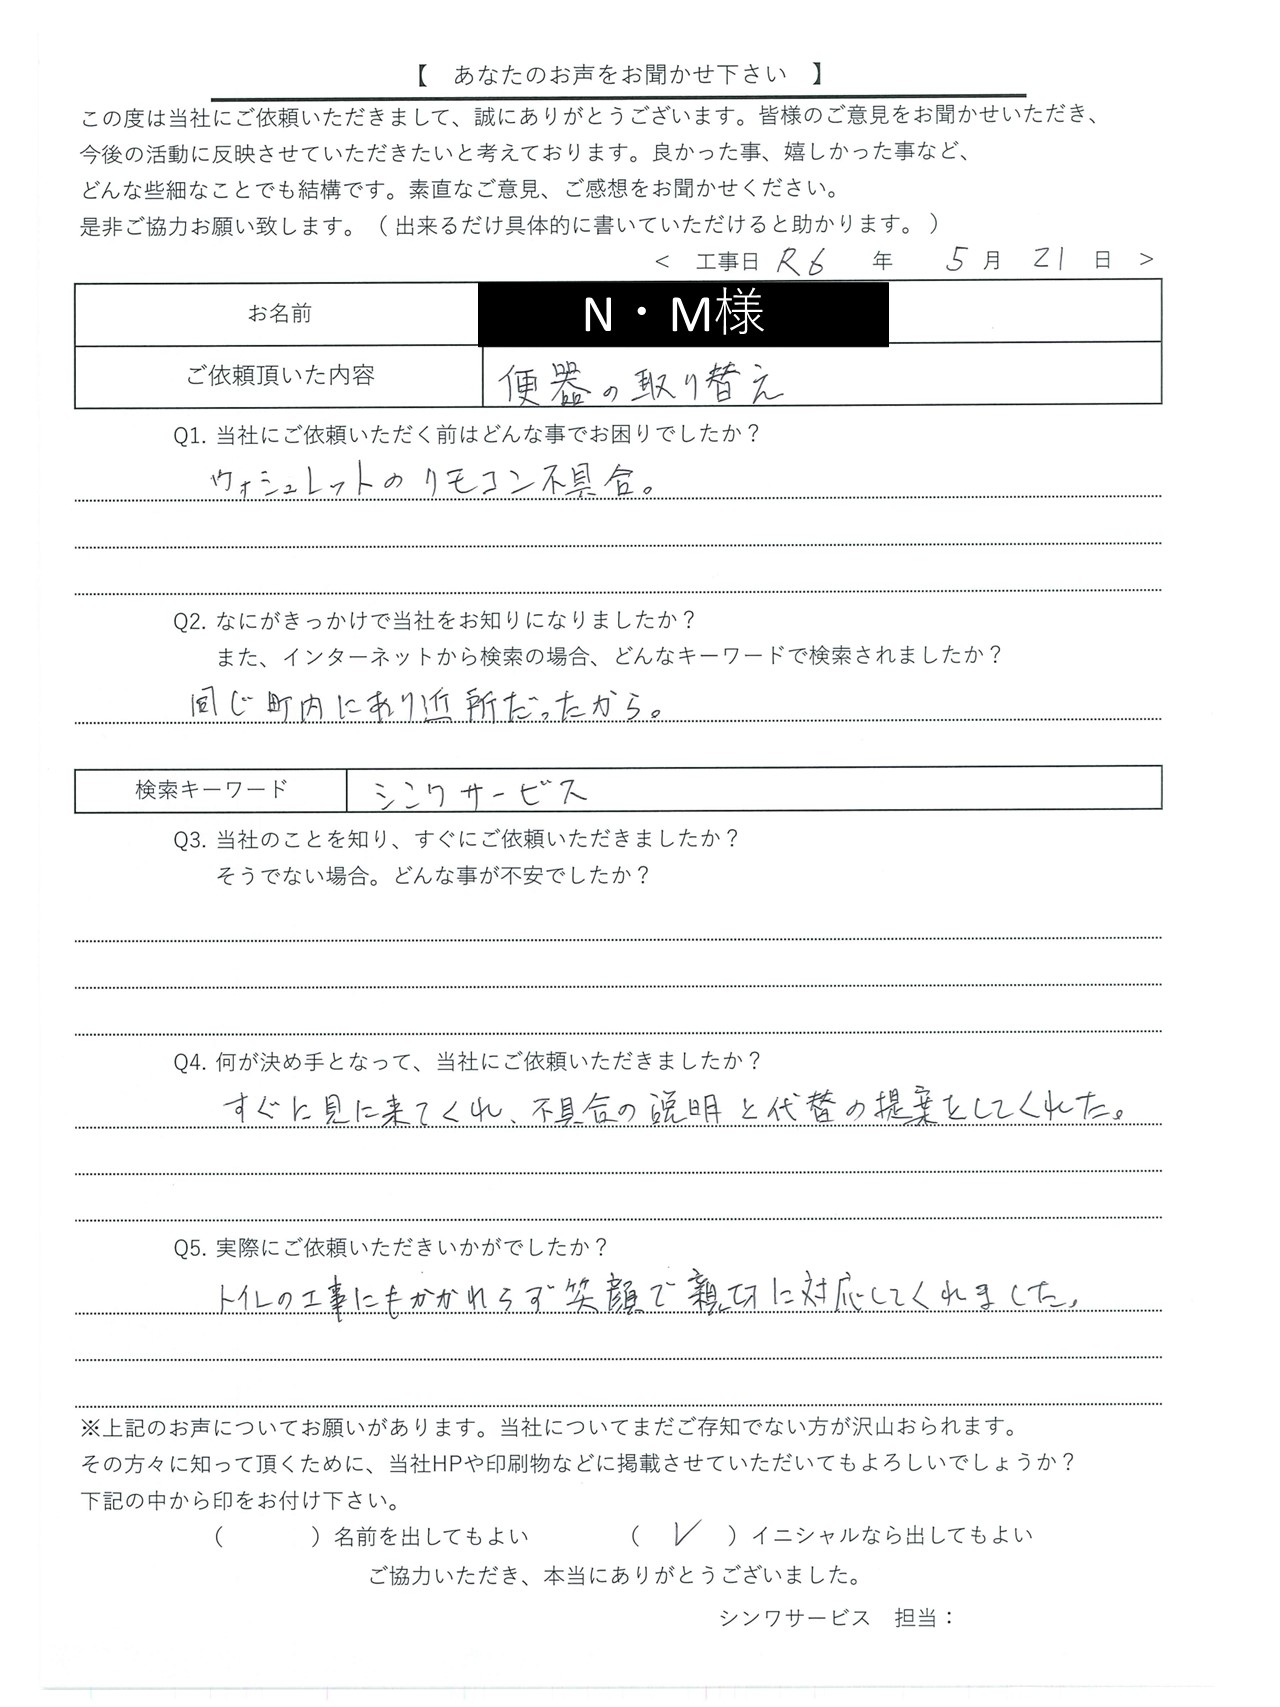 【 あなたのお声をお聞かせ下さい 】
この度は当社にご依頼いただきまして、誠にありがとうございます。皆様のご意見をお聞かせいただき、
今後の活動に反映させていただきたいと考えております。良かった事、嬉しかった事など、
どんな些細なことでも結構です。素直なご意見、ご感想をお聞かせください。
是非ご協力お願い致します。（ 出来るだけ具体的に書いていただけると助かります。 ）
＜ 工事日 R6 年 5 月 21 日 ＞
お名前 N・M様
ご依頼頂いた内容 便器の取り替え
Q1. 当社にご依頼いただく前はどんな事でお困りでしたか？
ウォシュレットのリモコン不具合。
Q2. なにがきっかけで当社をお知りになりましたか？
また、インターネットから検索の場合、どんなキーワードで検索されましたか？
同じ町内にあり近所だったから。
検索キーワード シンワサービス
Q3. 当社のことを知り、すぐにご依頼いただきましたか？
そうでない場合。どんな事が不安でしたか？
Q4. 何が決め手となって、当社にご依頼いただきましたか？
すぐに見に来てくれ、不具合の説明と代替の提案をしてくれた。
Q5. 実際にご依頼いただきいかがでしたか？
トイレの工事にもかかわらず笑顔で親切に対応してくれました。
※上記のお声についてお願いがあります。当社についてまだご存知でない方が沢山おられます。
その方々に知って頂くために、当社HPや印刷物などに掲載させていただいてもよろしいでしょうか？
下記の中から印をお付け下さい。
（ ）名前を出してもよい （ ✓ ）イニシャルなら出してもよい
ご協力いただき、本当にありがとうございました。
シンワサービス 担当：